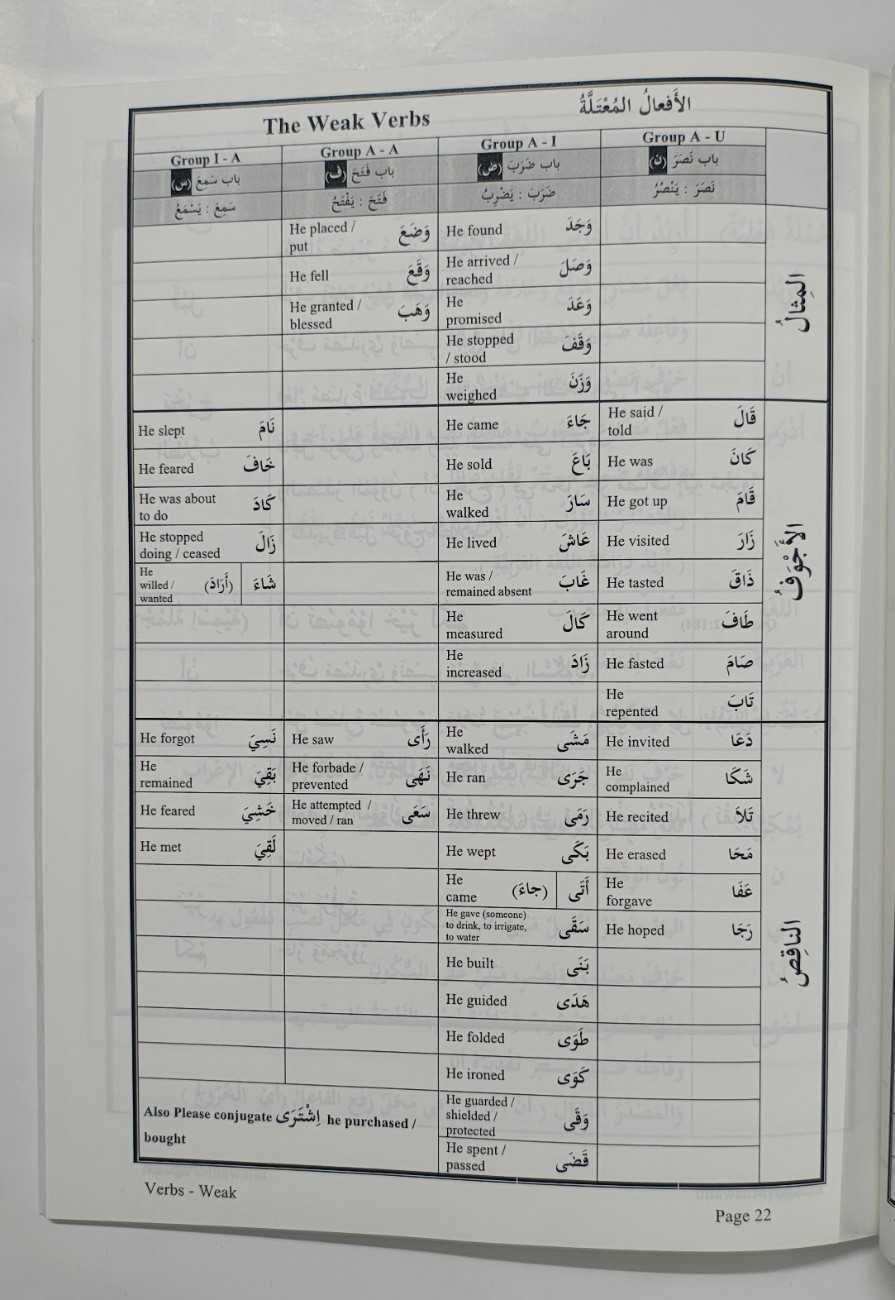 The Weak Verbs الأَفعالُ المُعْتَلَّةُ
Group I - A Group A - A Group A - I Group A - U
باب سَمِعَ (س) باب فَتَحَ (ف) باب ضَرَبَ (ض) باب نَصَرَ (ن)
سَمِعَ : يَسْمَعُ فَتَحَ : يَفْتَحُ ضَرَبَ : يَضْرِبُ نَصَرَ : يَنْصُرُ
المِثالُ
He placed / put وَضَعَ He found وَجَدَ
He fell وَقَعَ He arrived / reached وَصَلَ
He granted / blessed وَهَبَ He promised وَعَدَ
He stopped / stood وَقَفَ
He weighed وَزَنَ
الأَجْوَفُ
He slept نَامَ He came جَاءَ He said / told قَالَ
He feared خَافَ He sold بَاعَ He was كَانَ
He was about to do كَادَ He walked سَارَ He got up قَامَ
He stopped doing / ceased زَالَ He lived عَاشَ He visited زَارَ
He willed / wanted (أَرَادَ) شَاءَ He was / remained absent غَابَ He tasted ذَاقَ
He measured كَالَ He went around طَافَ
He increased زَادَ He fasted صَامَ
He repented تَابَ
الناقِصُ
He forgot نَسِيَ He saw رَأَى He walked مَشَى He invited دَعَا
He remained بَقِيَ He forbade / prevented نَهَى He ran جَرَى He complained شَكَا
He feared خَشِيَ He attempted / moved / ran سَعَى He threw رَمَى He recited تَلاَ
He met لَقِيَ He wept بَكَى He erased مَحَا
He came (جاءَ) أَتَى He forgave عَفَا
He gave (someone) to drink, to irrigate, to water سَقَى He hoped رَجَا
He built بَنَى
He guided هَدَى
He folded طَوَى
He ironed كَوَى
He guarded / shielded / protected وَقَى
He spent / passed قَضَى
Also Please conjugate اِشْتَرَى he purchased /
bought
Verbs - Weak
Page 22